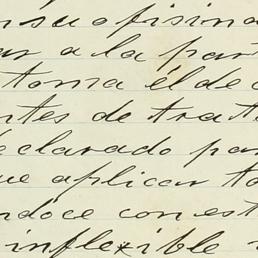 n su ofisina
ar a la part
toma él de c
ntes de trat
declarado par
ue aplicar to
ndoce con est
inflexible